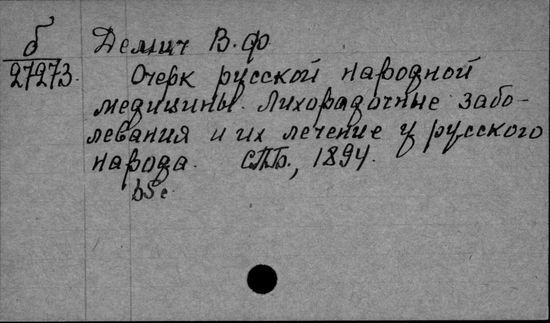 б
27273.
Демич В.Ф.
Очерк русской народной
медицины. Лихорадочные забо-
левания и их лечение у русского
народа. СПб., 1894.
65с